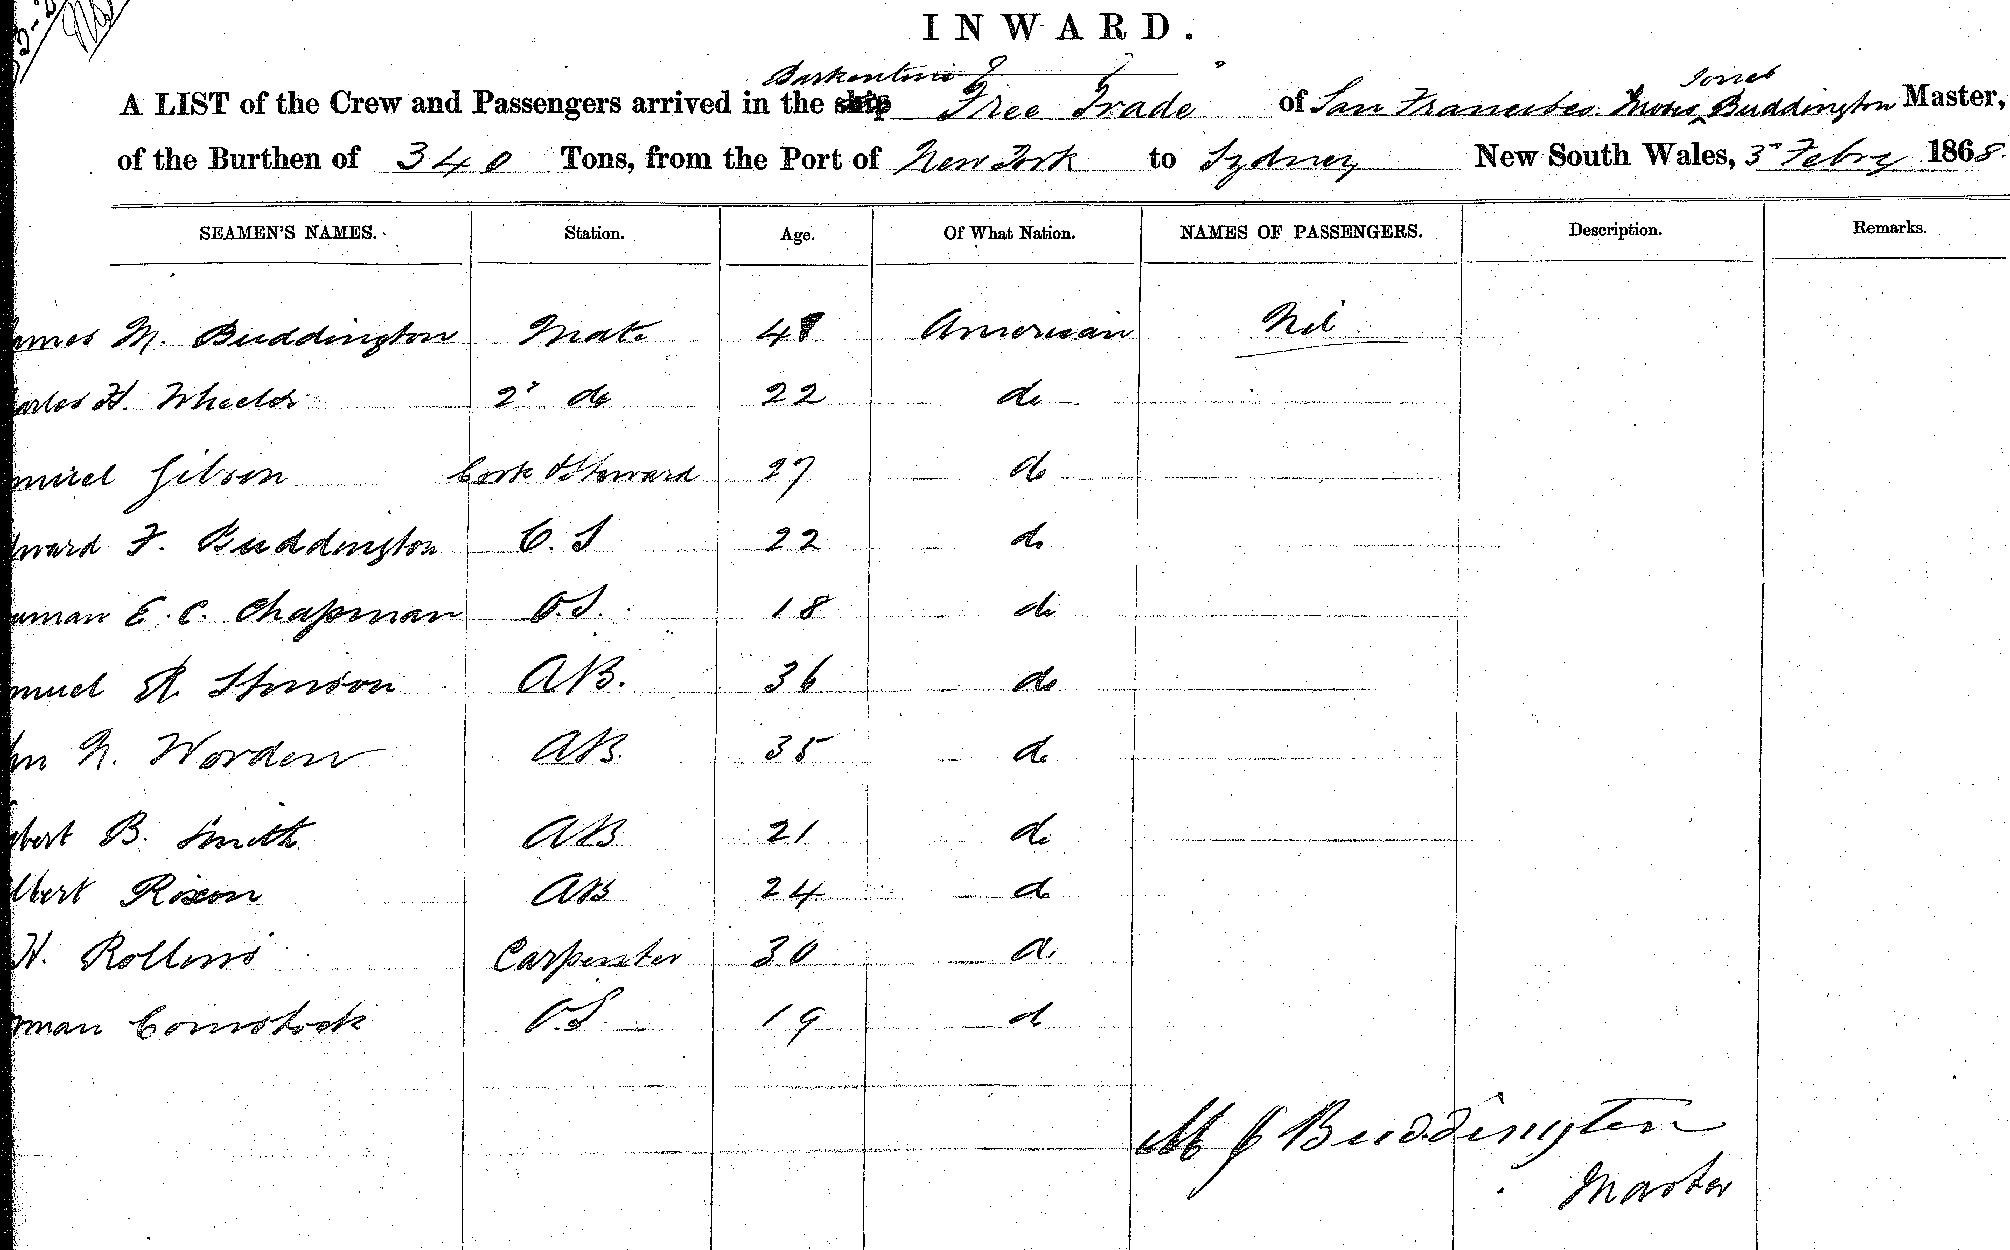 INWARD.
Barkentine
Jones
A LIST of the Crew and Passengers arrived in the ship Free Trade of San Francisco Moses Buddington Master,
of the Burthen of 340 Tons, from the Port of New York to Sydney New South Wales, 3 Febry 1868.
SEAMEN'S NAMES. Station. Age. Of What Nation. NAMES OF PASSENGERS. Description. Remarks.
ames M. Buddington Mate 48 American Nil
arles H. Wheeler 2d do 22 do
muel Gibson Cook & Steward 27 do
dward F. Buddington O.S 22 do
uman E. C. Chapman O.S. 18 do
muel R Stinson AB. 36 do
hn N. Worden AB. 35 do
bert B. Smith AB 21 do
lbert Rixon AB 24 do
H. Rollins Carpenter 30 do
rman Comstock O.S 19 do
M J Buddington
Master